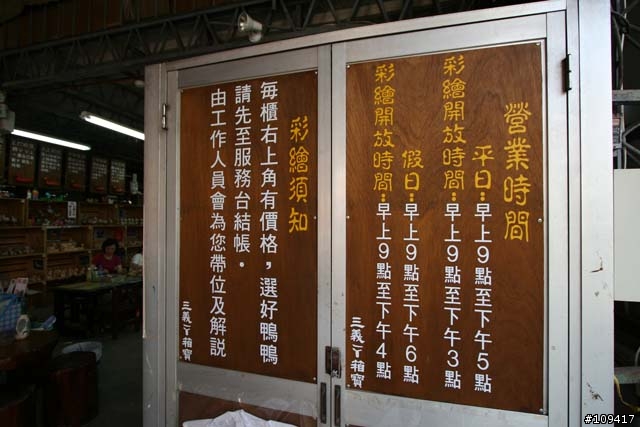 營業時間
平日：早上9點至下午5點
彩繪開放時間：早上9點至下午3點
假日：早上9點至下午6點
彩繪開放時間：早上9點至下午4點
三義ㄚ箱寶
彩繪須知
每櫃右上角有價格，選好鴨鴨
請先至服務台結帳．
由工作人員會為您帶位及解說
三義ㄚ箱寶
#109417